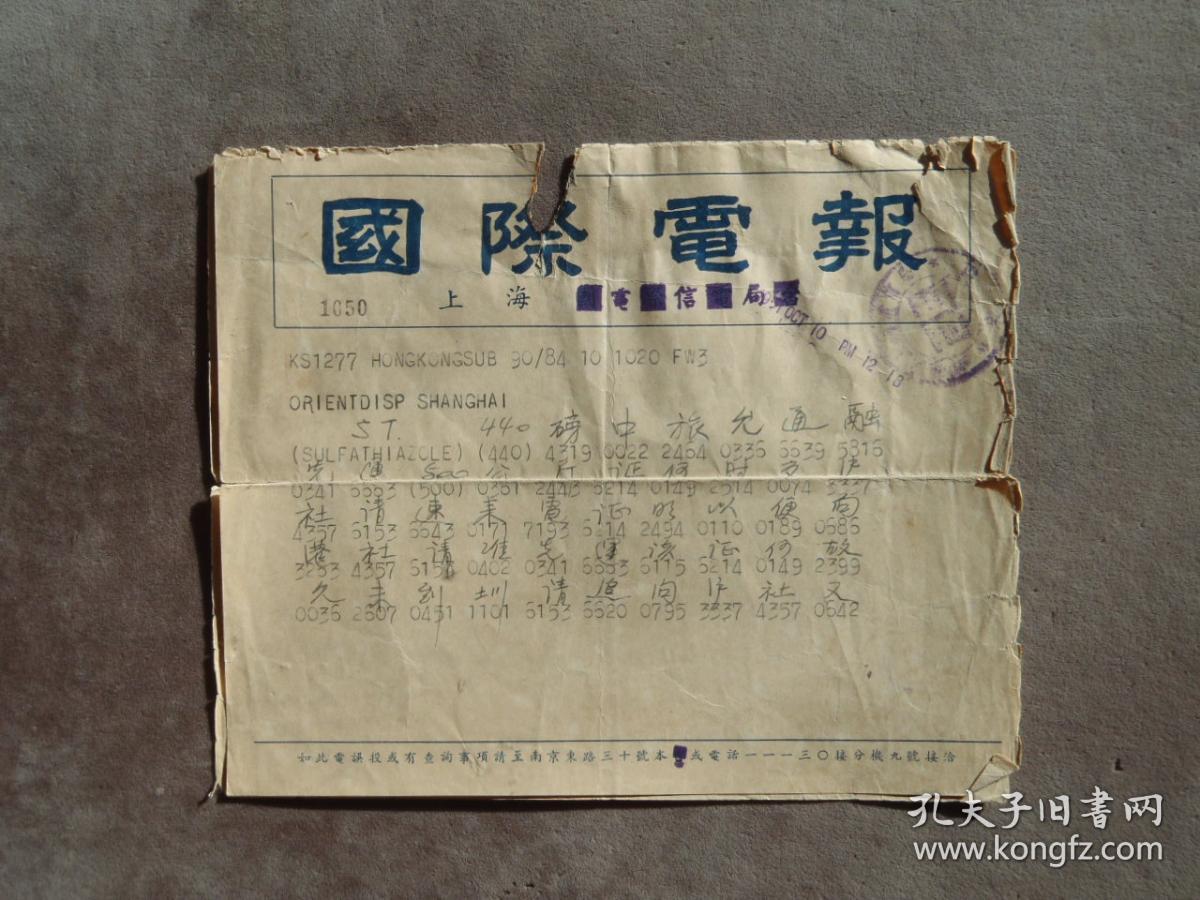 國際電報
1050 上海 電信局
OCT 10 PM 12-18
KS1277 HONGKONGSUB 90/84 10 1020 FW3
ORIENTDISP SHANGHAI
ST. 440 磅中旅允通融
(SULFATHIAZOLE) (440) 4319 0022 2464 0336 6639 5816
先运 500 公斤证何时交沪
0341 6663 (500) 0361 2443 6214 0149 2514 0074 3337
社请速来電证明以便向
4357 6153 6643 0171 7193 6214 2494 0110 0189 0686
港社请准先運该证何故
3263 4357 6153 0402 0341 6663 6115 6214 0149 2399
久未到圳请追向沪社又
0036 2607 0451 1101 6153 6620 0795 3337 4357 0642
如此電誤投或有查詢事項請至南京東路三十號本 或電話一一一三〇接分機九號接洽
孔夫子旧书网
www.kongfz.com